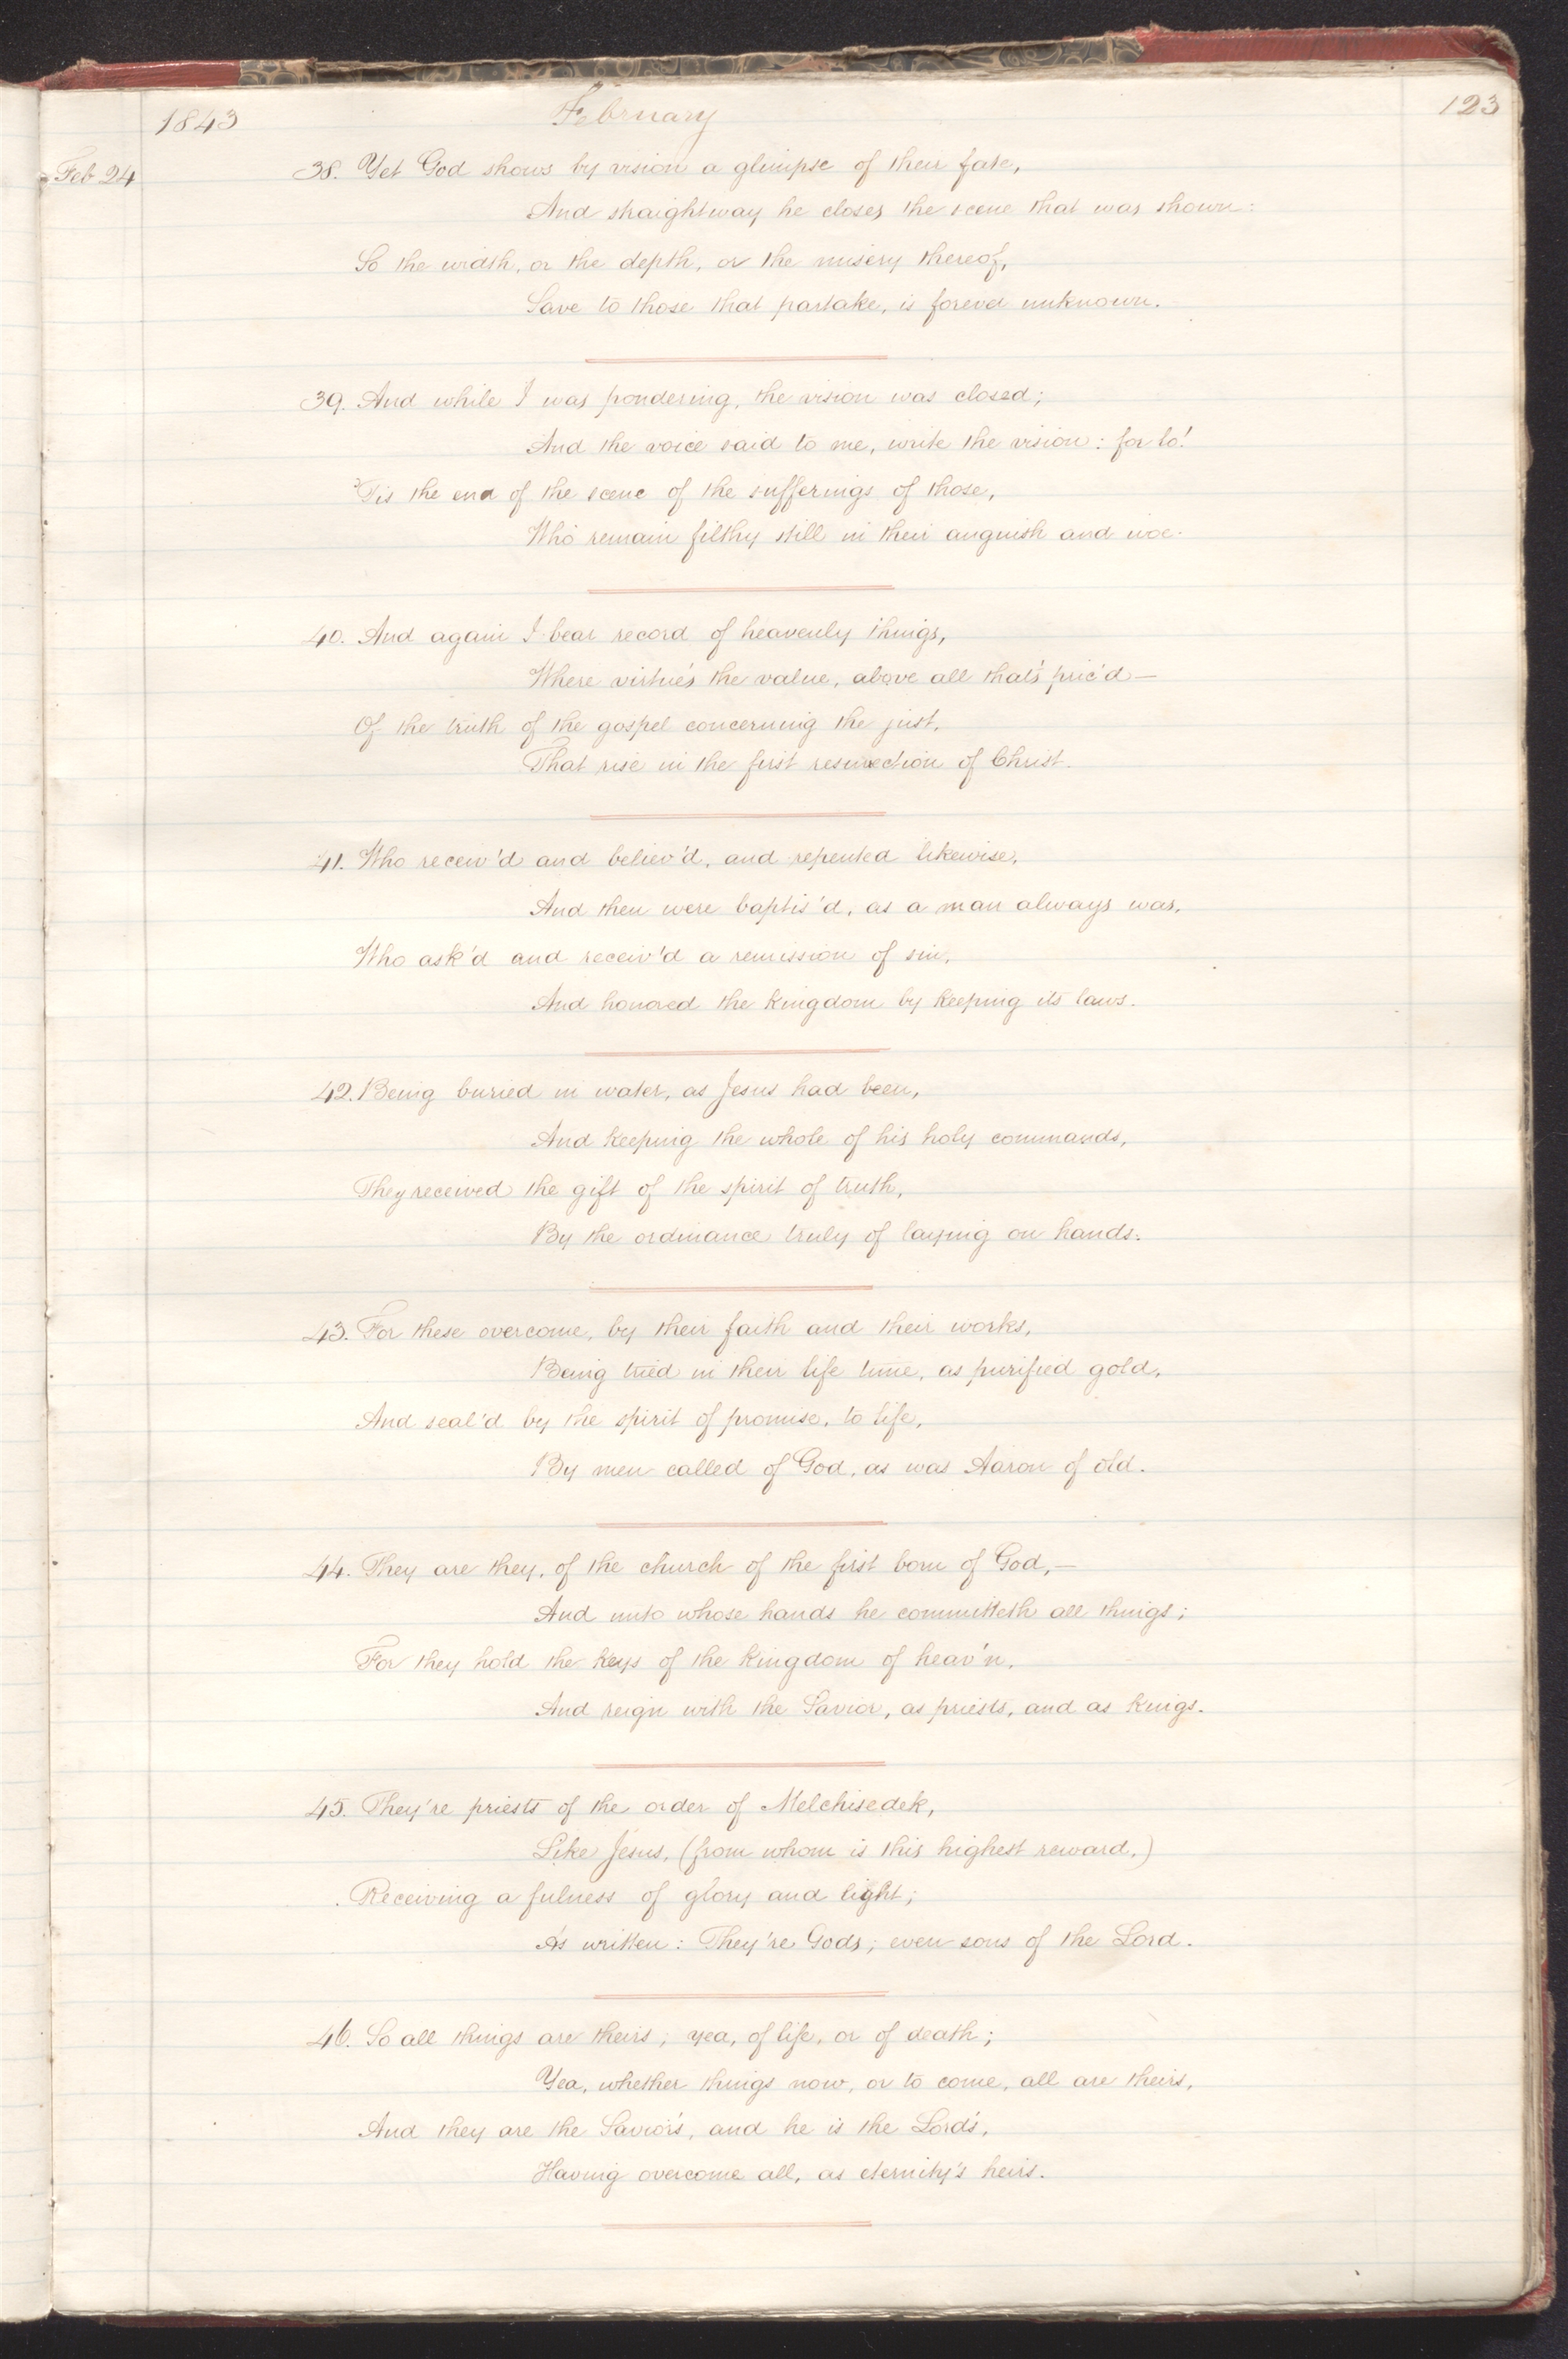 1843 February 123
Feb 24
38. Yet God shows by vision a glimpse of their fate,
And straightway he closes the scene that was shown:
So the width, or the depth, or the misery thereof,
Save to those that partake, is forever unknown.
39. And while I was pondering, the vision was closed;
And the voice said to me, write the vision: for lo!
'Tis the end of the scene of the sufferings of those,
Who remain filthy still in their anguish and woe.
40. And again I bear record of heavenly things,
Where virtue's the value, above all that's pric'd—
Of the truth of the gospel concerning the just,
That rise in the first resurrection of Christ.
41. Who receiv'd and believ'd, and repented likewise,
And then were baptis'd, as a man always was,
Who ask'd and receiv'd a remission of sin,
And honored the kingdom by keeping its laws.
42. Being buried in water, as Jesus had been,
And keeping the whole of his holy commands,
They received the gift of the spirit of truth,
By the ordinance truly of laying on hands.
43. For these overcome, by their faith and their works,
Being tried in their life time, as purified gold,
And seal'd by the spirit of promise, to life,
By men called of God, as was Aaron of old.
44. They are they, of the church of the first born of God,—
And unto whose hands he committeth all things;
For they hold the keys of the kingdom of heav'n,
And reign with the Savior, as priests, and as kings.
45. They're priests of the order of Melchisedek,
Like Jesus, (from whom is this highest reward,)
Receiving a fulness of glory and light;
As written: They're Gods; even sons of the Lord.
46. So all things are theirs; yea, of life, or of death;
Yea, whether things now, or to come, all are theirs,
And they are the Savior's, and he is the Lord's,
Having overcome all, as eternity's heirs.